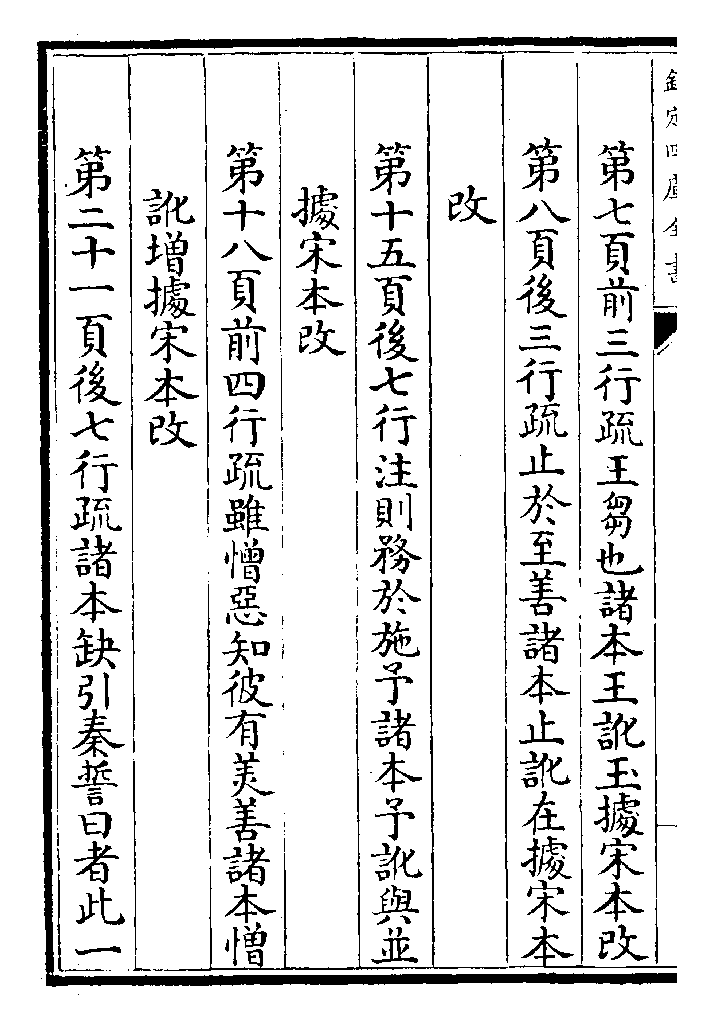 欽定四庫全書
第七頁前三行疏王芻也諸本王訛玉據宋本改
第八頁後三行疏止於至善諸本止訛在據宋本
改
第十五頁後七行注則務於施予諸本予訛與並
據宋本改
第十八頁前四行疏雖憎惡知彼有美善諸本憎
訛增據宋本改
第二十一頁後七行疏諸本缺引秦誓曰者此一